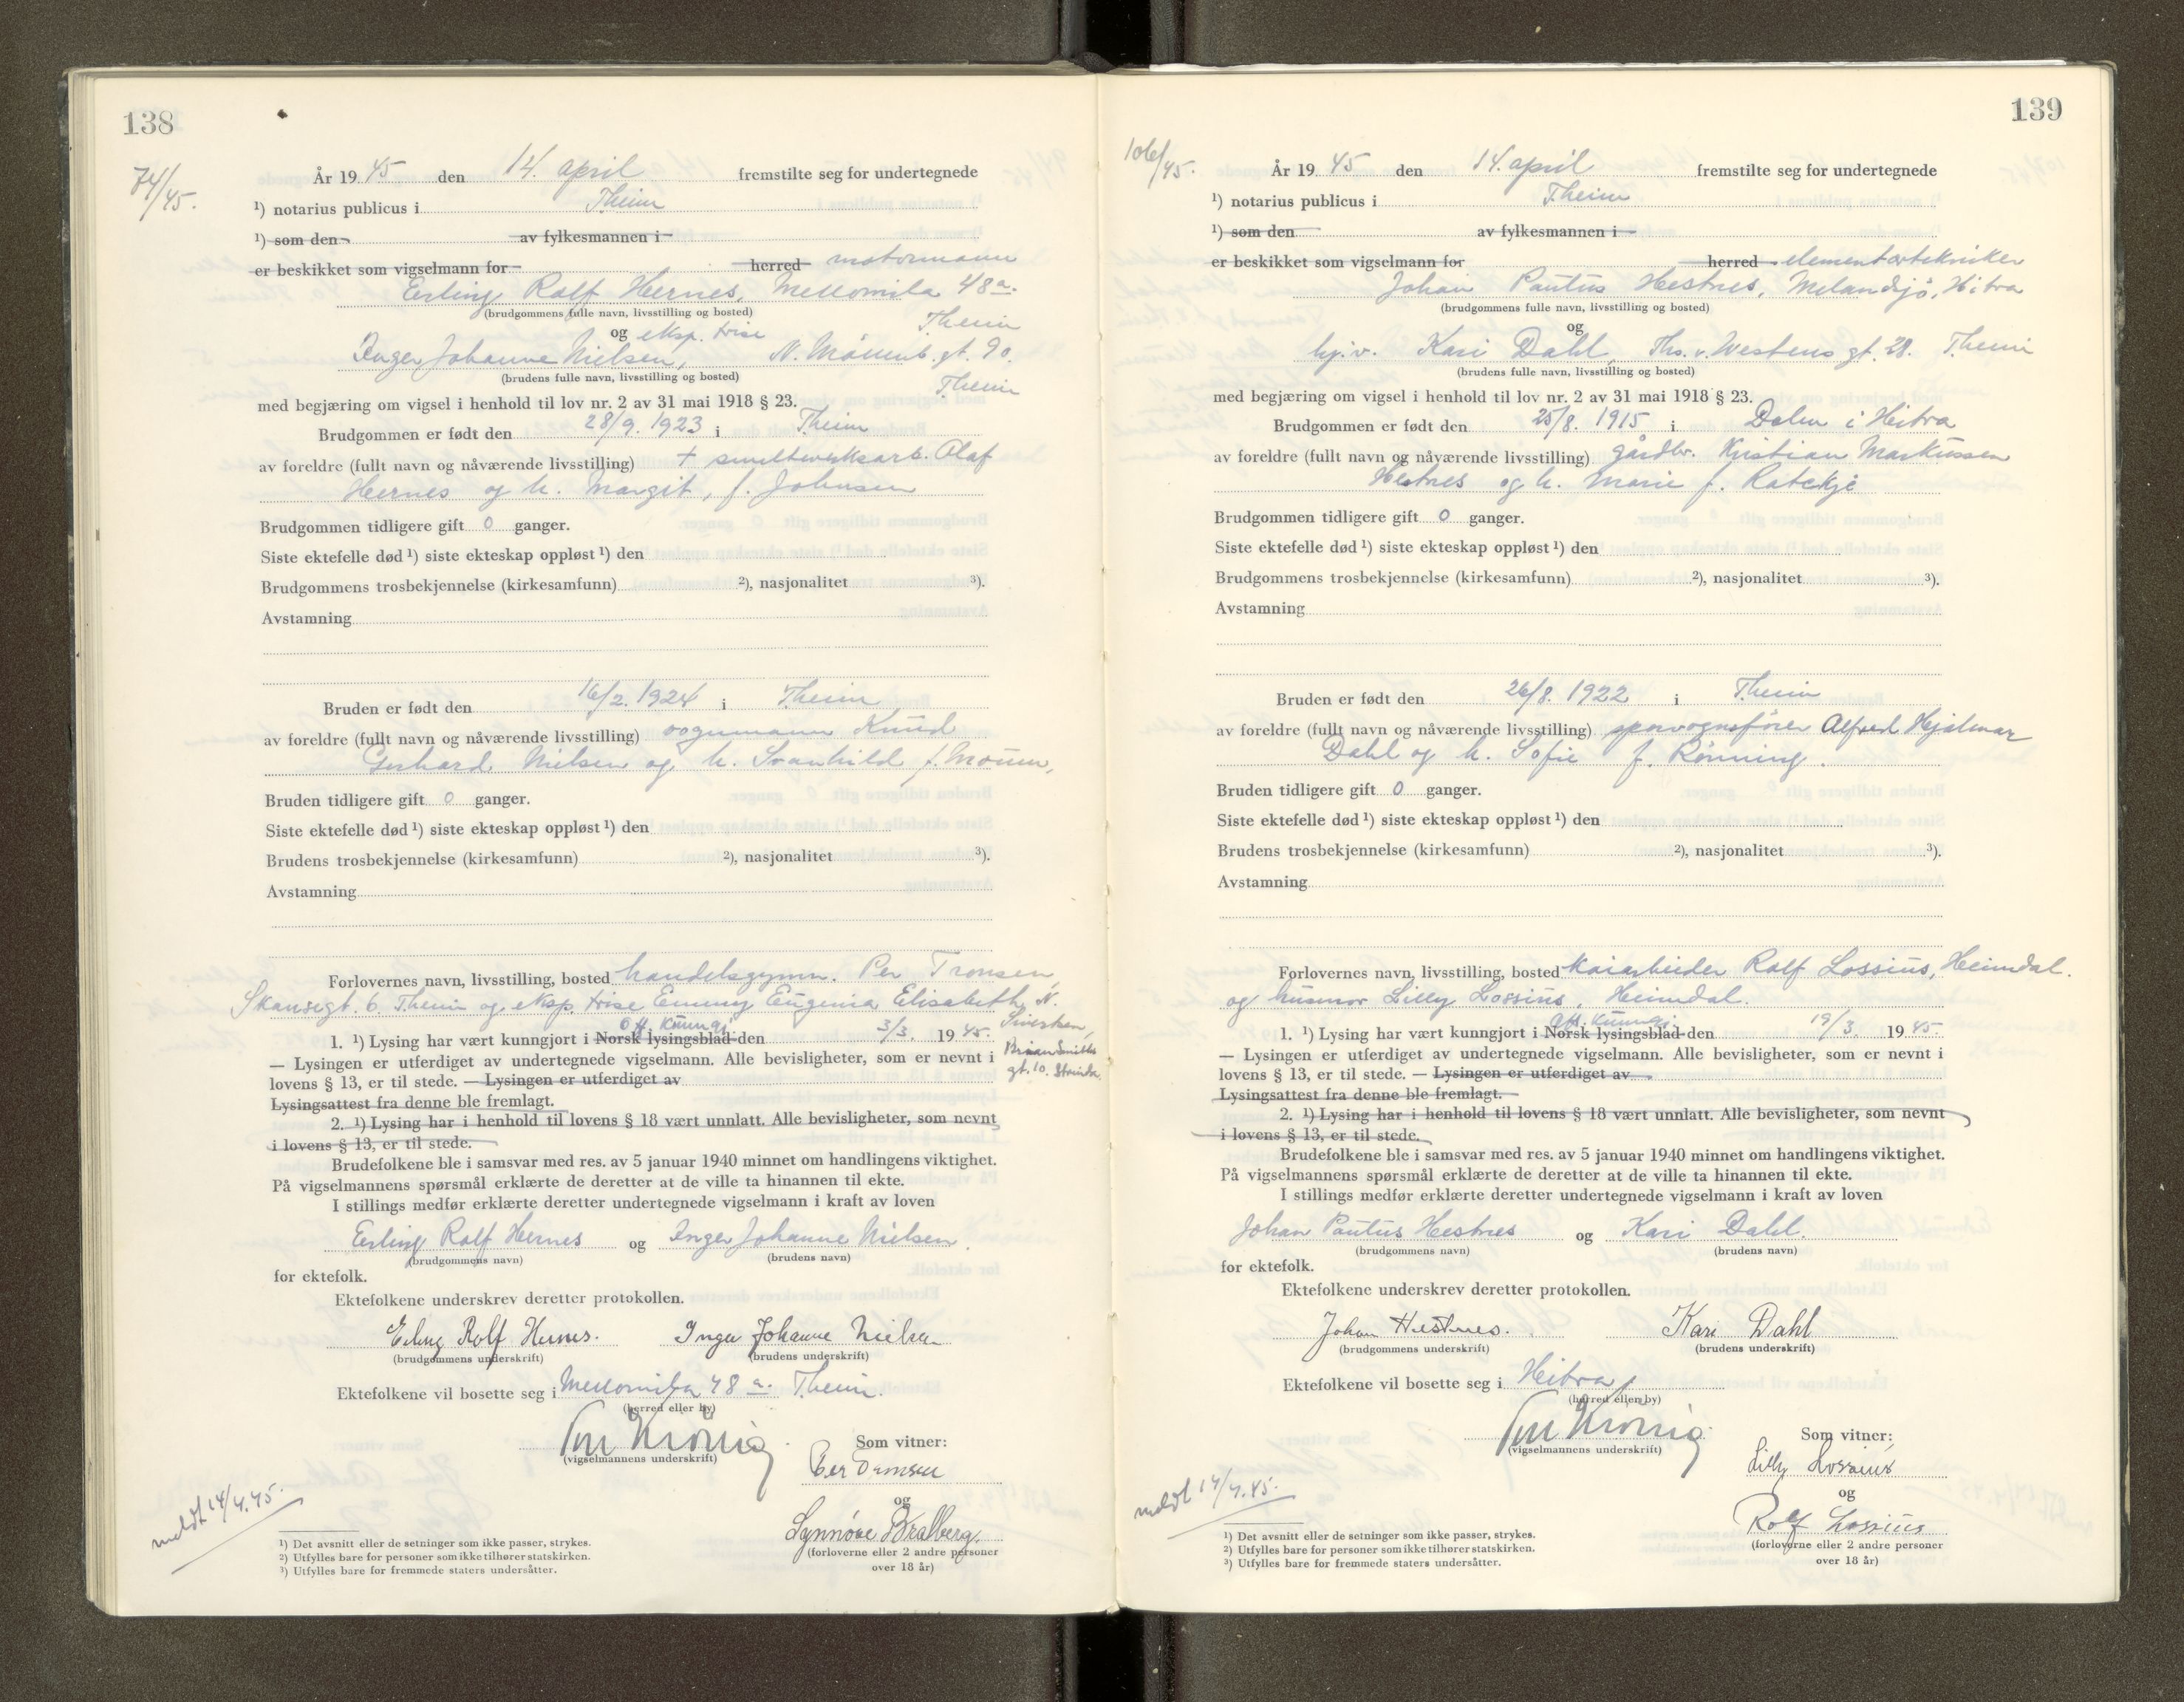 138
74/45.
År 19 45 den 14. april fremstilte seg for undertegnede
¹) notarius publicus i Theim
¹) som den av fylkesmannen i
er beskikket som vigselmann for herred motormann
Erling Rolf Hernes, Mellomila 48a.
(brudgommens fulle navn, livsstilling og bosted) Theim
og eksp. trise
Inger Johanne Nielsen, N. Møllenb. gt. 90.
(brudens fulle navn, livsstilling og bosted) Theim
med begjæring om vigsel i henhold til lov nr. 2 av 31 mai 1918 § 23.
Brudgommen er født den 28/9. 1923 i Theim
av foreldre (fullt navn og nåværende livsstilling) + smelteverksarb. Olaf
Hernes og h. Margit, f. Johnsen
Brudgommen tidligere gift 0 ganger.
Siste ektefelle død ¹) siste ekteskap oppløst ¹) den
Brudgommens trosbekjennelse (kirkesamfunn) ²), nasjonalitet ³).
Avstamning
Bruden er født den 16/2. 1924 i Theim
av foreldre (fullt navn og nåværende livsstilling) vognmann Knud
Gerhard Nielsen og h. Svanhild f.
Bruden tidligere gift 0 ganger.
Siste ektefelle død ¹) siste ekteskap oppløst ¹) den
Brudens trosbekjennelse (kirkesamfunn) ²), nasjonalitet ³).
Avstamning
Forlovernes navn, livsstilling, bosted handelsgymn. Per Tronsen,
Skansegt. 6. Theim og eksp. trise Emmy Eugenia Elisabeth N.
Sivertsen,
Off. Kunngj.
1. ¹) Lysing har vært kunngjort i Norsk lysingsblad den 3/3. 19 45.
Brian Smiths
— Lysingen er utferdiget av undertegnede vigselmann. Alle bevisligheter, som er nevnt i
gt. 10. Strinda.
lovens § 13, er til stede. — Lysingen er utferdiget av
Lysingsattest fra denne ble fremlagt.
2. ¹) Lysing har i henhold til lovens § 18 vært unnlatt. Alle bevisligheter, som nevnt
i lovens § 13, er til stede.
Brudefolkene ble i samsvar med res. av 5 januar 1940 minnet om handlingens viktighet.
På vigselmannens spørsmål erklærte de deretter at de ville ta hinannen til ekte.
I stillings medfør erklærte deretter undertegnede vigselmann i kraft av loven
Erling Rolf Hernes og Inger Johanne Nielsen.
(brudgommens navn) (brudens navn)
for ektefolk.
Ektefolkene underskrev deretter protokollen.
Erling Rolf Hernes. Inger Johanne Nielsen
(brudgommens underskrift) (brudens underskrift)
Ektefolkene vil bosette seg i Mellomila 48 a. Theim.
(herred eller by)
Krönig
(vigselmannens underskrift)
Som vitner:
Per Tronsen
og
Synnøve Bralberg.
(forloverne eller 2 andre personer
over 18 år)
meldt 14/4.45.
¹) Det avsnitt eller de setninger som ikke passer, strykes.
²) Utfylles bare for personer som ikke tilhører statskirken.
³) Utfylles bare for fremmede staters undersåtter.
139
106/45.
År 19 45 den 14. april fremstilte seg for undertegnede
¹) notarius publicus i Theim
¹) som den av fylkesmannen i
er beskikket som vigselmann for herred elementærtekniker
Johan Paulus Hestnes, Melandsjø, Hitra
(brudgommens fulle navn, livsstilling og bosted)
og
hj.v. Kari Dahl, Ths. v. Westens gt. 28. Theim
(brudens fulle navn, livsstilling og bosted)
med begjæring om vigsel i henhold til lov nr. 2 av 31 mai 1918 § 23.
Brudgommen er født den 25/8. 1915 i Dolm i Hitra
av foreldre (fullt navn og nåværende livsstilling) gårdbr. Kristian Markussen
Hestnes og h. Marie f.
Brudgommen tidligere gift 0 ganger.
Siste ektefelle død ¹) siste ekteskap oppløst ¹) den
Brudgommens trosbekjennelse (kirkesamfunn) ²), nasjonalitet ³).
Avstamning
Bruden er født den 26/8. 1922 i Theim
av foreldre (fullt navn og nåværende livsstilling) sporvognsfører Alfred Hjalmar
Dahl og h. Sofie f. Rønning.
Bruden tidligere gift 0 ganger.
Siste ektefelle død ¹) siste ekteskap oppløst ¹) den
Brudens trosbekjennelse (kirkesamfunn) ²), nasjonalitet ³).
Avstamning
Forlovernes navn, livsstilling, bosted kaiarbeider Rolf Lossius, Heimdal.
og husmor Lilly Lossius, Heimdal.
Off. Kunngj.
1. ¹) Lysing har vært kunngjort i Norsk lysingsblad den 19/3. 19 45.
— Lysingen er utferdiget av undertegnede vigselmann. Alle bevisligheter, som er nevnt i
lovens § 13, er til stede. — Lysingen er utferdiget av
Lysingsattest fra denne ble fremlagt.
2. ¹) Lysing har i henhold til lovens § 18 vært unnlatt. Alle bevisligheter, som nevnt
i lovens § 13, er til stede.
Brudefolkene ble i samsvar med res. av 5 januar 1940 minnet om handlingens viktighet.
På vigselmannens spørsmål erklærte de deretter at de ville ta hinannen til ekte.
I stillings medfør erklærte deretter undertegnede vigselmann i kraft av loven
Johan Paulus Hestnes og Kari Dahl.
(brudgommens navn) (brudens navn)
for ektefolk.
Ektefolkene underskrev deretter protokollen.
Johan Hestnes. Kari Dahl
(brudgommens underskrift) (brudens underskrift)
Ektefolkene vil bosette seg i Hitra
(herred eller by)
Krönig
(vigselmannens underskrift)
Som vitner:
Lilly Lossius
og
Rolf Lossius
(forloverne eller 2 andre personer
over 18 år)
meldt 14/4.45.
¹) Det avsnitt eller de setninger som ikke passer, strykes.
²) Utfylles bare for personer som ikke tilhører statskirken.
³) Utfylles bare for fremmede staters undersåtter.